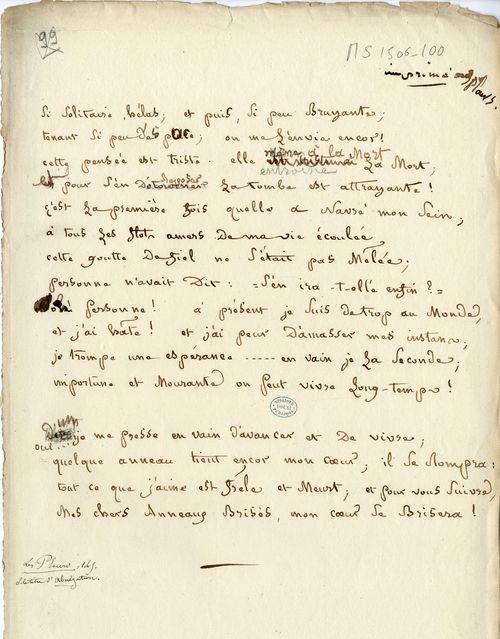 99
MS 1506-100
imprimé
si solitaire, hélas ; et puis, si peu Bruyante ;
tenant si peu d'espace ; on me l'envie encor !
cette pensée est triste. elle mène à la Mort
entraine la Mort,
et pour s'en reposer La tombe est attrayante !
c'est La première fois quelle a Navré mon Sein ;
à tous Les flots amers De ma vie écoulée
cette goutte De fiel ne s'était pas Mêlée ;
personne n'avait Dit : = s'en ira-t-elle enfin ? =
Personne ! à présent je suis De trop au Monde,
et j'ai hâte ! et j'ai peur D'amasser mes instans ;
je trompe une espérance ----- en vain je La seconde ;
importune et Mourante on peut vivre Long-temps !
oui... je me presse en vain d'avancer et De vivre ;
quelque anneau tient encor mon cœur ; il se Rompra :
tout ce que j'aime est frêle et Meurt ; et pour vous suivre
Mes chers Anneaux Brisés, mon cœur se Brisera !
Les Pleurs, 145.
sous le titre d'abnégation.